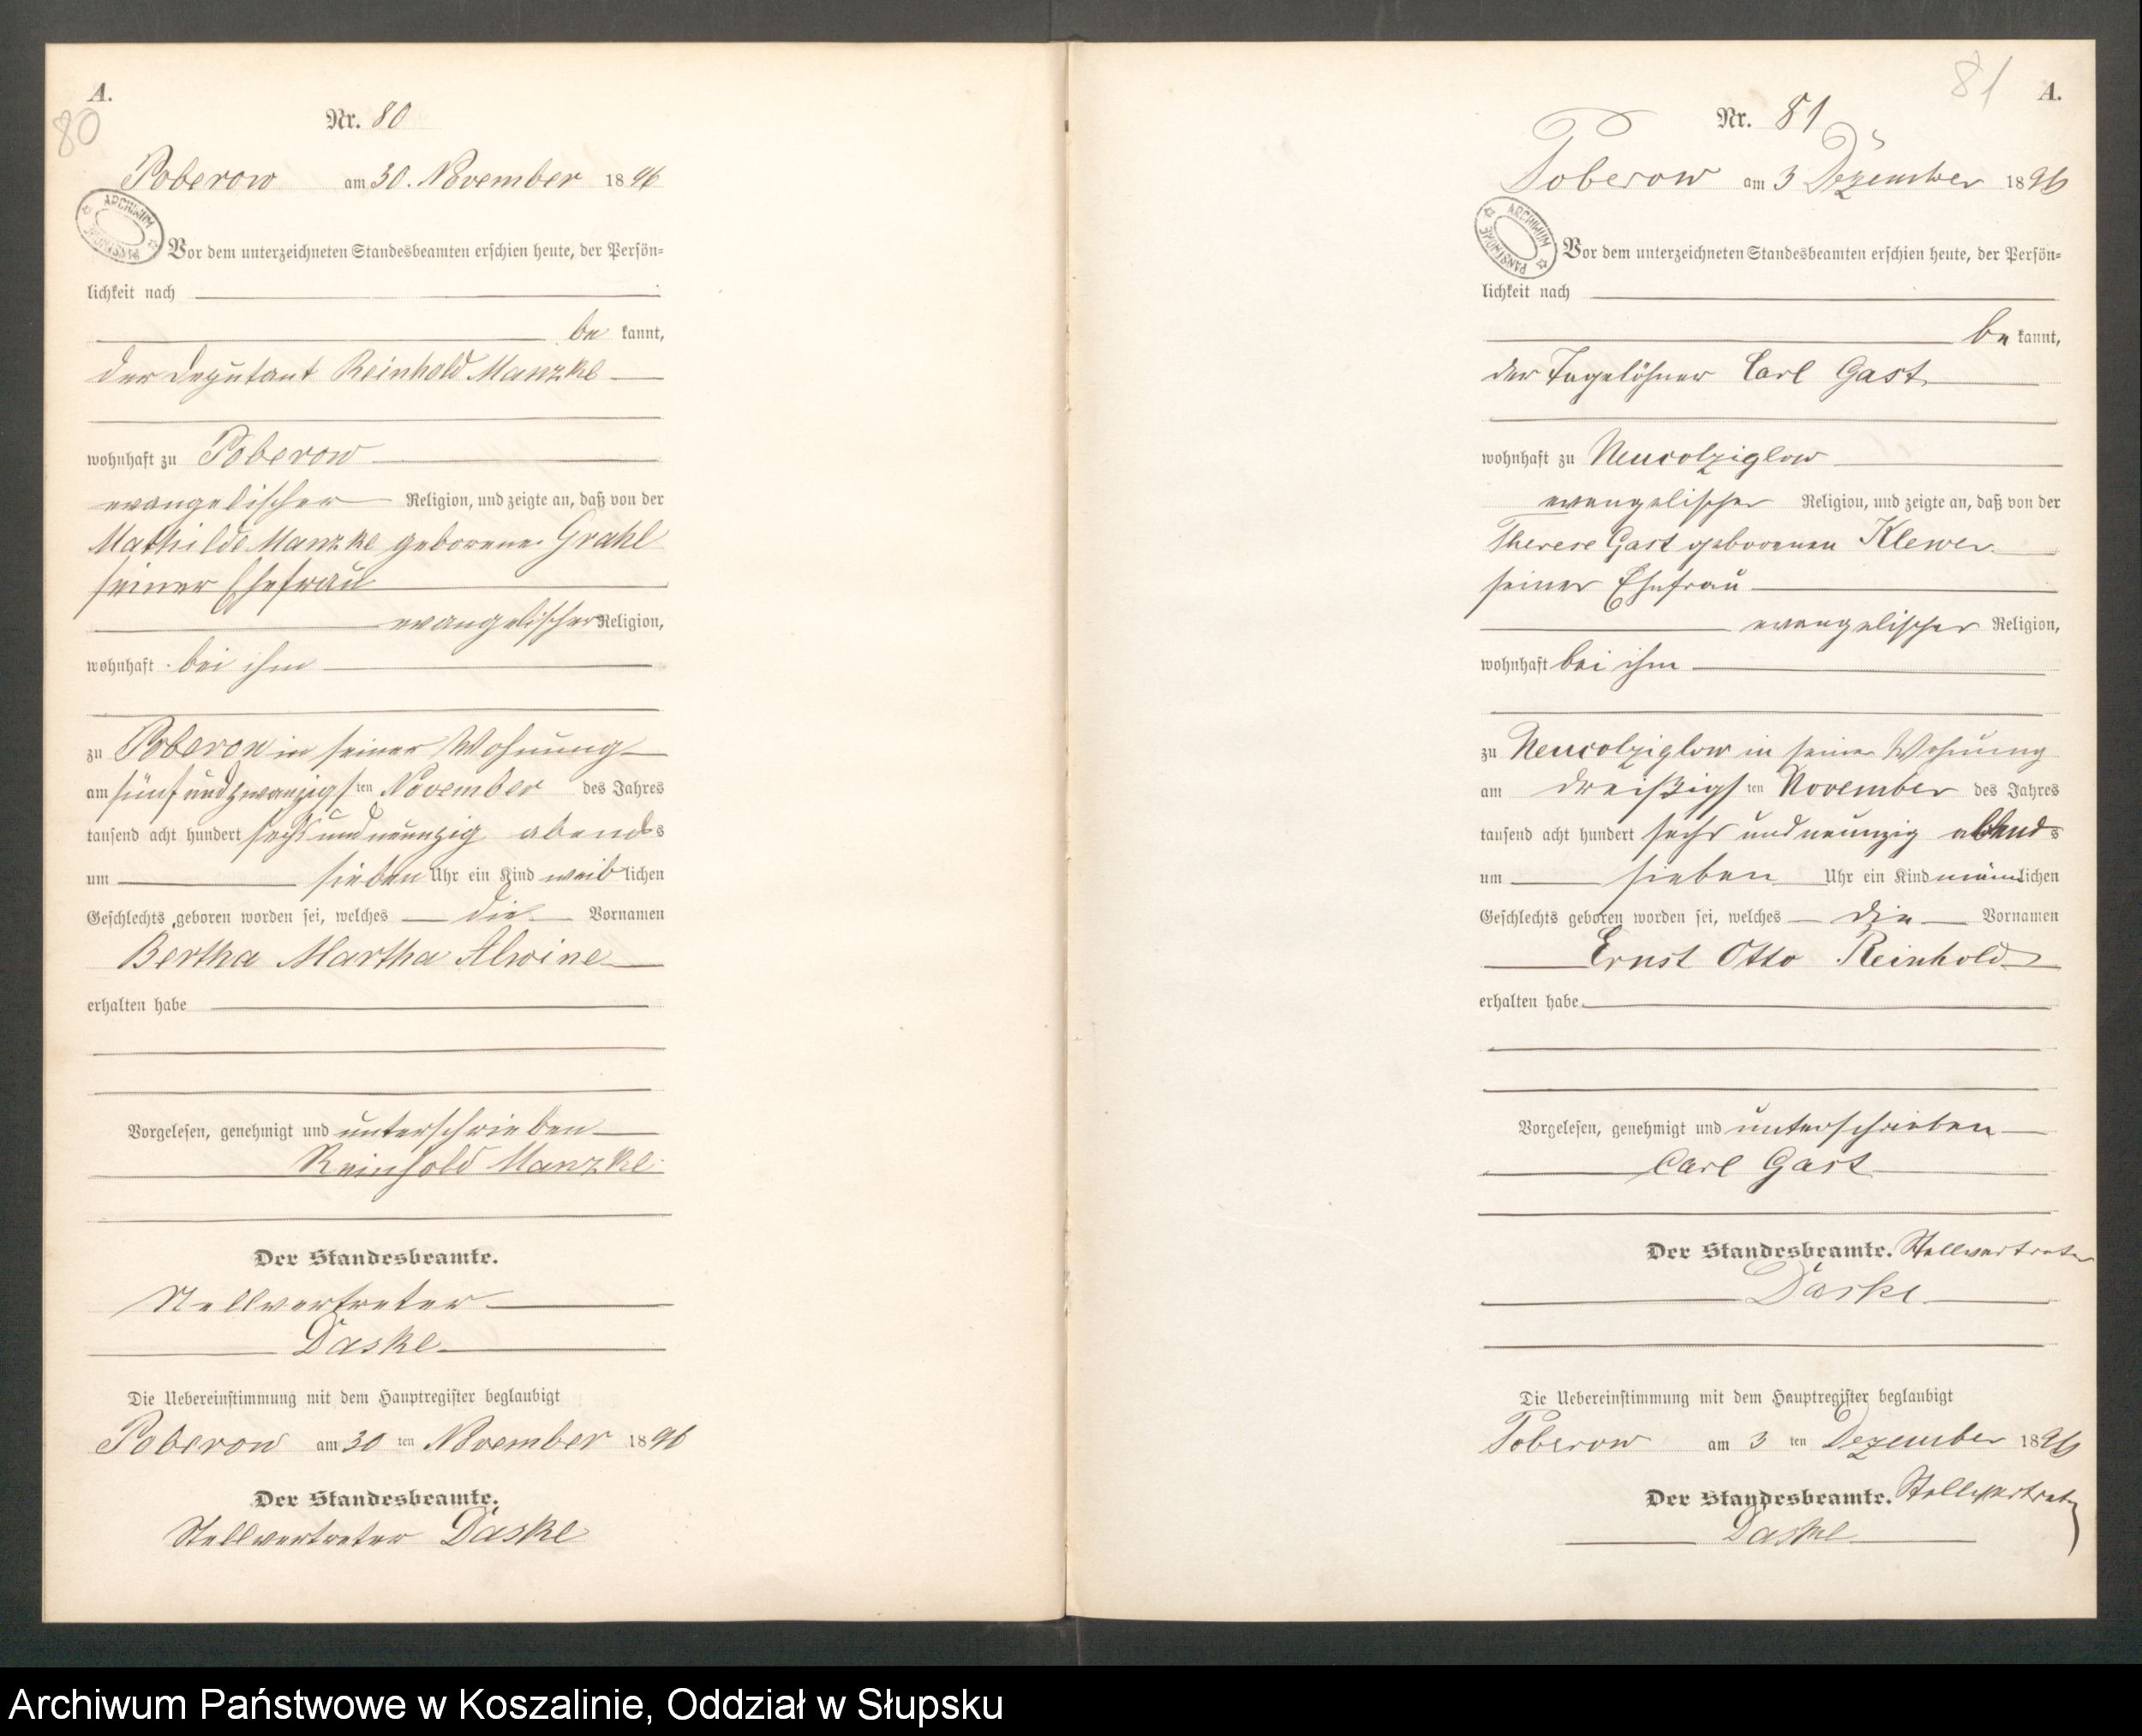 A.
80
Nr. 80
Poberow am 30. November 1896
ARCHIWUM PAŃSTWOWE
Vor dem unterzeichneten Standesbeamten erschien heute, der Persön=
lichkeit nach
be kannt,
der Deputant Reinhold Manzke
wohnhaft zu Poberow
evangelischer Religion, und zeigte an, daß von der
Mathilde Manzke geborene Grahl
seiner Ehefrau
evangelischer Religion,
wohnhaft bei ihm
zu Poberow in seiner Wohnung
am fünf und zwanzigsten November des Jahres
tausend acht hundert sechs und neunzig abends
um sieben Uhr ein Kind weiblichen
Geschlechts geboren worden sei, welches die Vornamen
Bertha Martha Alwine
erhalten habe
Vorgelesen, genehmigt und unterschrieben
Reinhold Manzke
Der Standesbeamte.
Stellvertreter
Daske
Die Uebereinstimmung mit dem Hauptregister beglaubigt
Poberow am 30 ten November 1896
Der Standesbeamte.
Stellvertreter Daske
81
A.
Nr. 81
Poberow am 3 Dezember 1896
ARCHIWUM PAŃSTWOWE
Vor dem unterzeichneten Standesbeamten erschien heute, der Persön=
lichkeit nach
be kannt,
der Tagelöhner Carl Gast
wohnhaft zu Neucolziglow
evangelischer Religion, und zeigte an, daß von der
Therese Gast geborenen Klewer
seiner Ehefrau
evangelischer Religion,
wohnhaft bei ihm
zu Neucolziglow in seiner Wohnung
am dreißigsten November des Jahres
tausend acht hundert sechs und neunzig abends
um sieben Uhr ein Kind männlichen
Geschlechts geboren worden sei, welches die Vornamen
Ernst Otto Reinhold
erhalten habe
Vorgelesen, genehmigt und unterschrieben
Carl Gast
Der Standesbeamte. Stellvertreter
Daske
Die Uebereinstimmung mit dem Hauptregister beglaubigt
Poberow am 3 ten Dezember 1896
Der Standesbeamte. Stellvertreter
Daske
Archiwum Państwowe w Koszalinie, Oddział w Słupsku